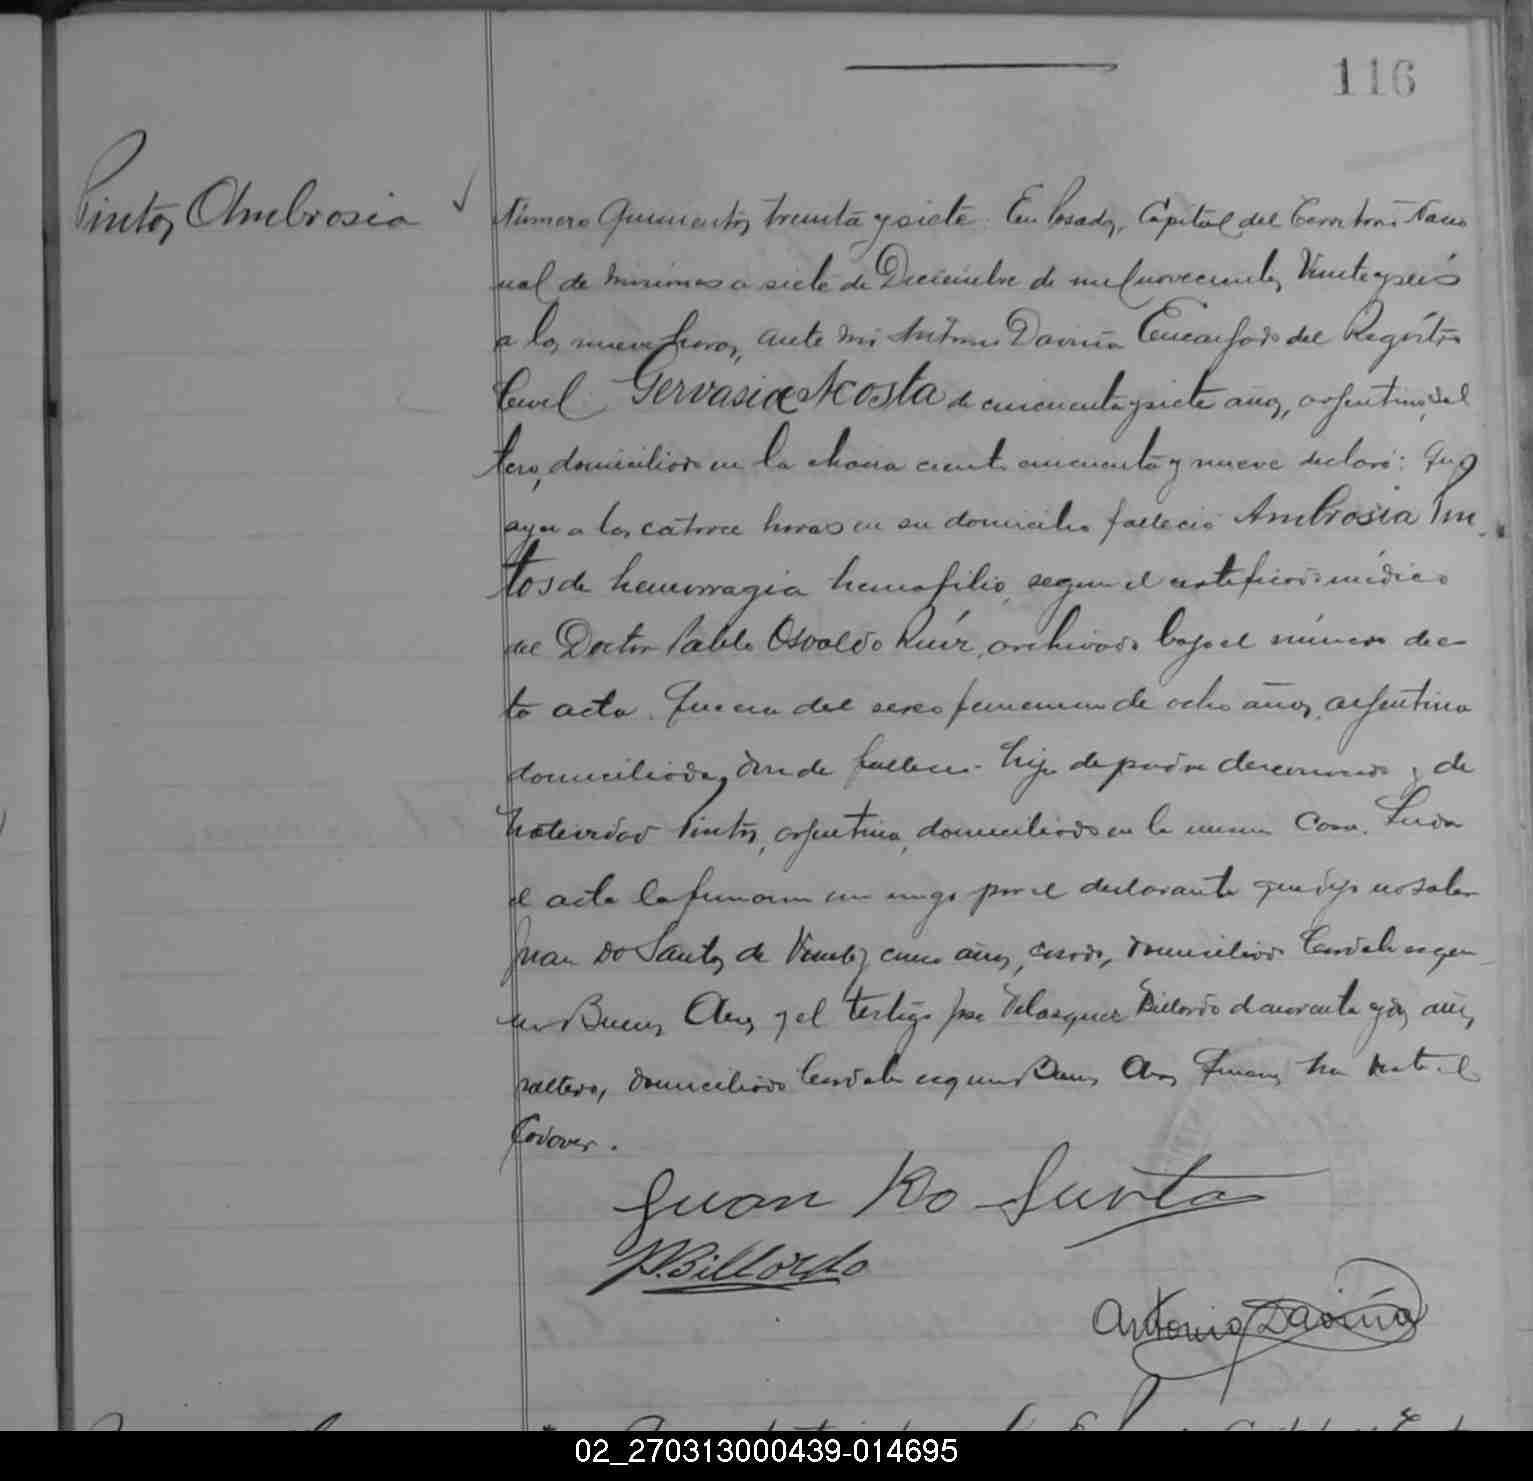 116
Pintos Ambrosia
Número Quinientos treinta y siete. En Posadas, Capital del Territorio Nacio
nal de Misiones a siete de Diciembre de mil novecientos Veinte y seis
a las nueve horas, ante mi Antonio Daviña Encargado del Registro
Civil Gervasio Acosta de cincuenta y siete años, argentino, sol
tero, domiciliado en la chacra ciento cincuenta y nueve declaró: Que
ayer a las catorce horas en su domicilio falleció Ambrosia Pin
tos de hemorragia hemofilia, segun el certificado médico
del Doctor Pablo Osvaldo Ruíz, archivado bajo el número de es
ta acta. Que era del sexo femenino de ocho años, argentina
domiciliada donde falleció hija de padre desconocido y de
Natividad Pintos, argentina, domiciliada en la misma casa. Leida
el acta la firmaron a ruego por el declarante que dijo no saber
Juan Do Santos de Veinte y cinco años, casado, domiciliado
Buenos Aires y el testigo José Velasquez Billordo de cuarenta y dos años,
soltero, domiciliado Buenos Aires Quienes han visto el
Cadaver.
Juan Do Santos
V. Billordo
Antonio Daviña
02_270313000439-014695